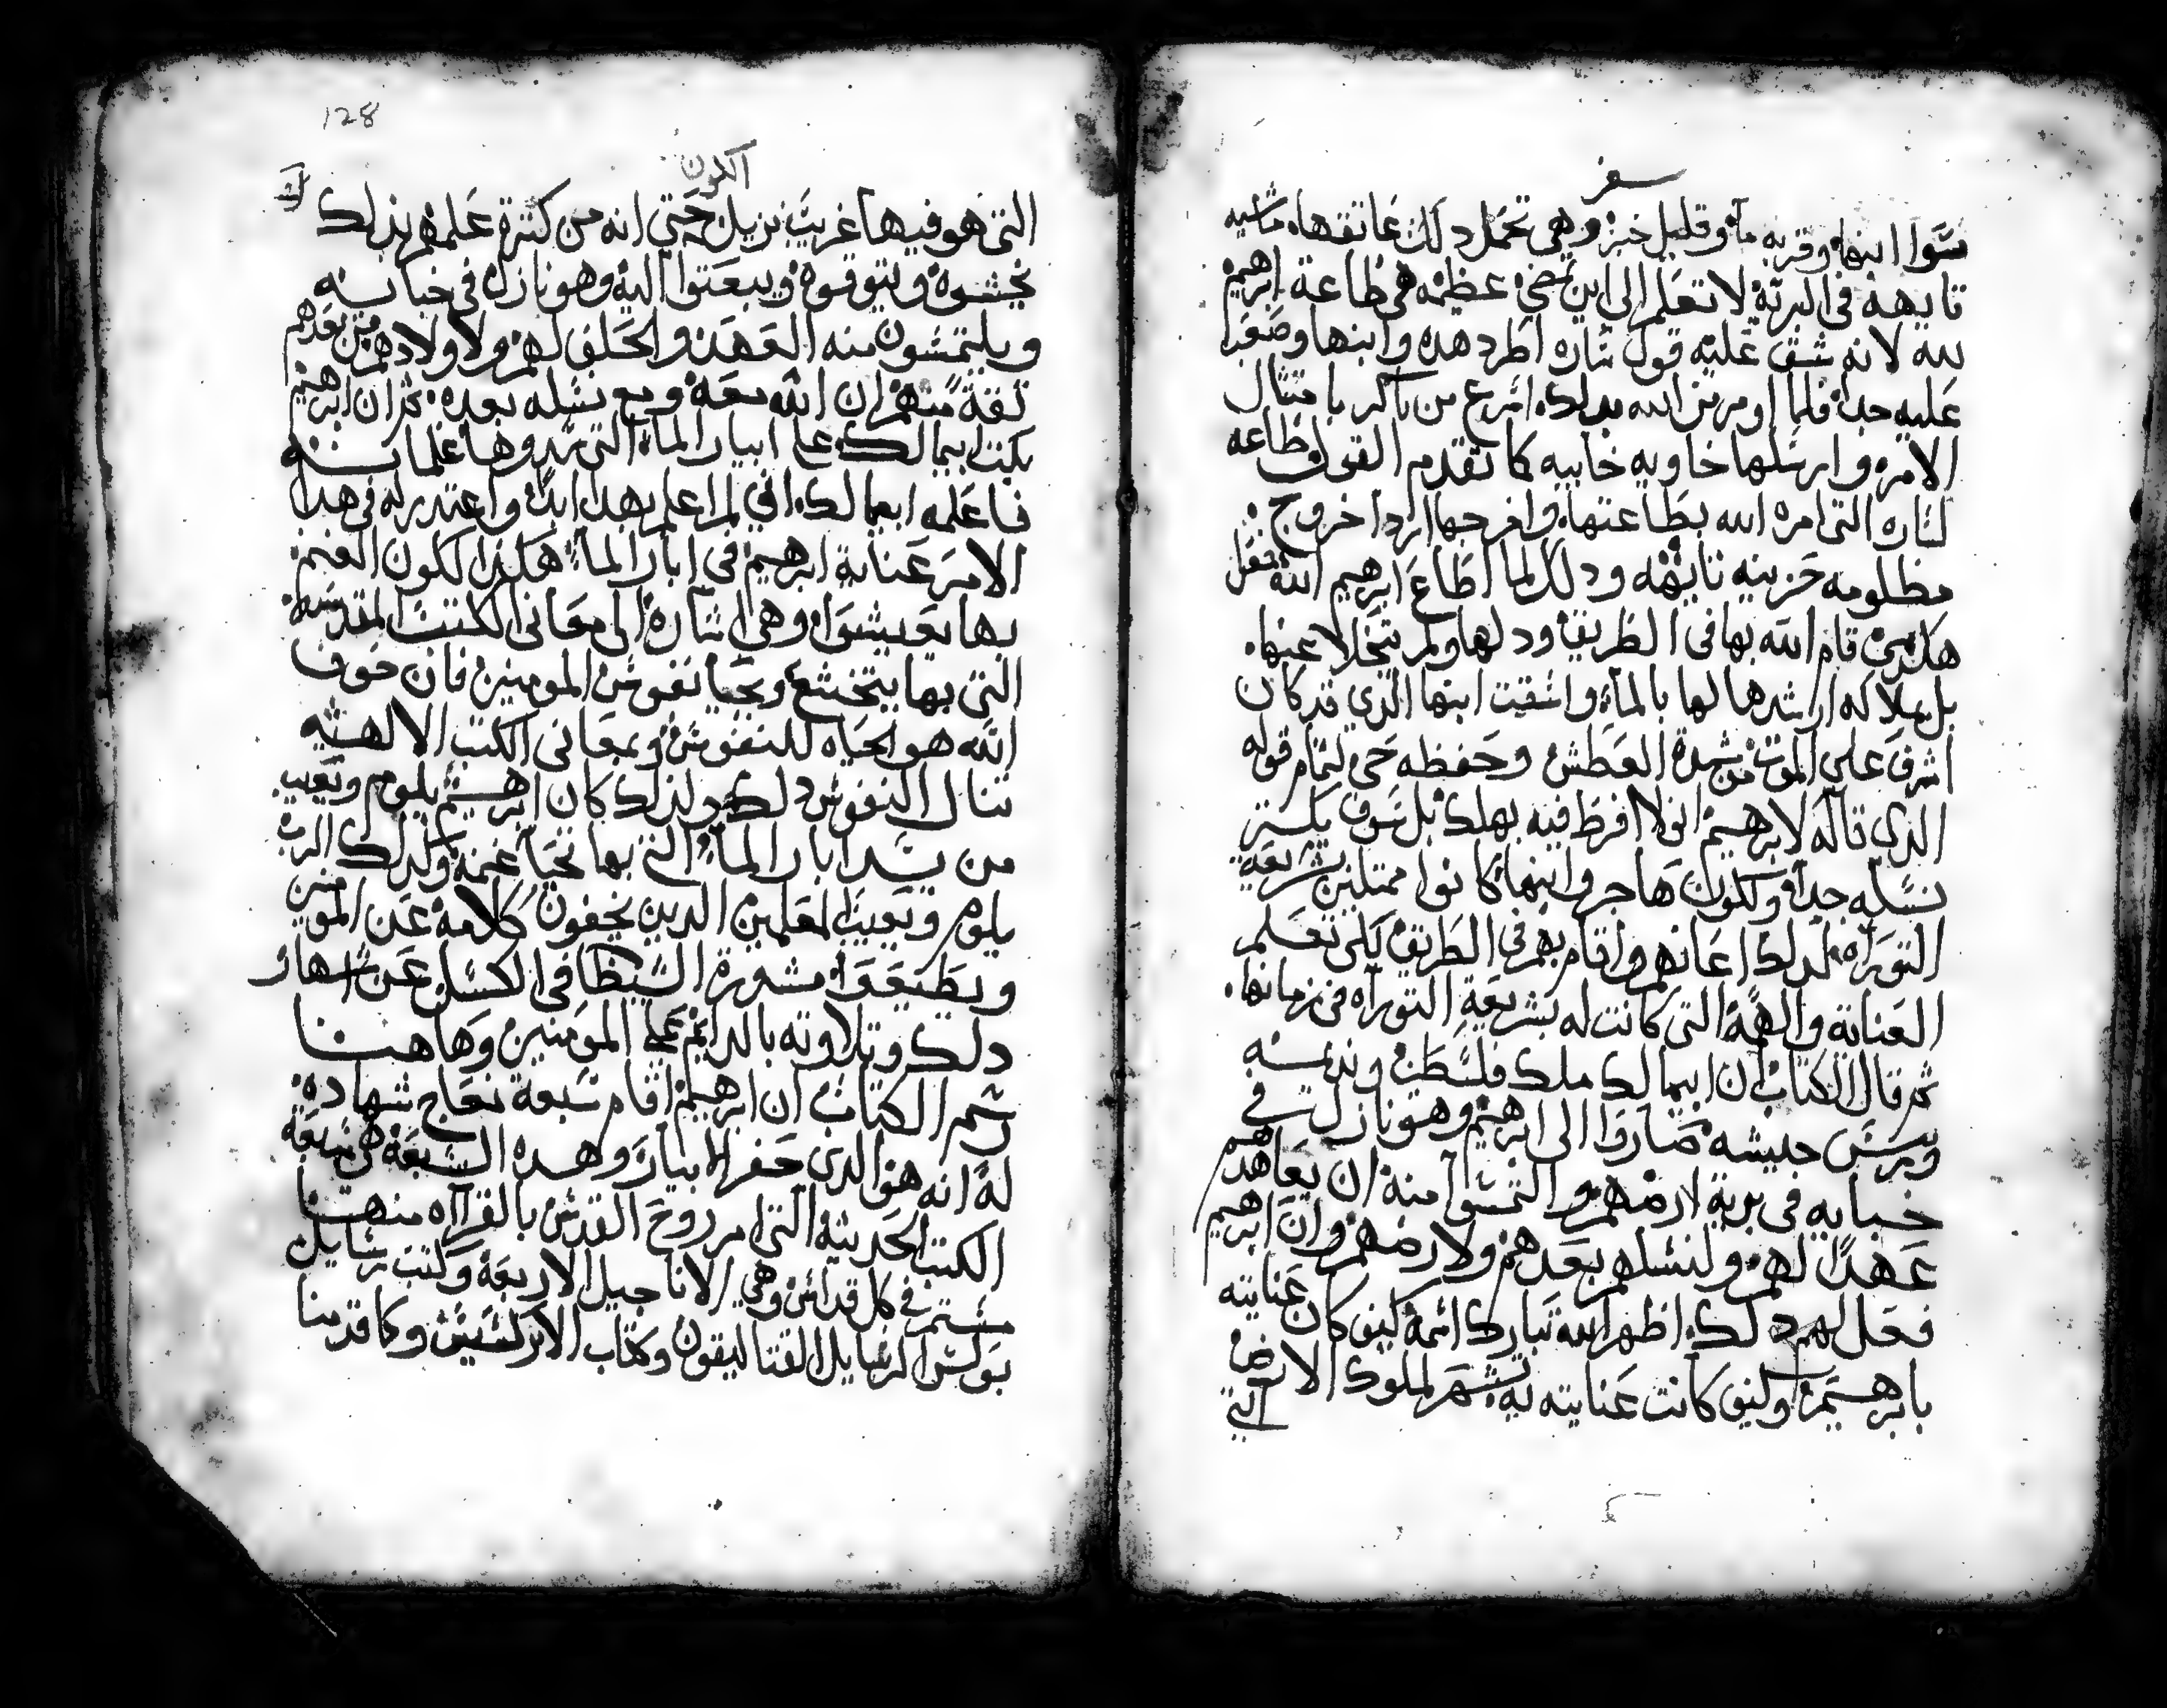 سفر
سوا ابنها وقربه ماء وقليل خبز وهي تحمل دلك عاتقها ماشيه
تايهه في البريه لا تعلم الى اين تمضي عظيمه هي طاعة ابرهيم
لله لانه شق عليه قول ساره اطرد هده وابنها وصعب
عليه جدا فلما اومر من الله بدلك اسرع من باكر بامتثال
الامر وارسلها خاويه خاييه كما تقدم القول طاعه
لساره التي امره الله بطاعتها واخرجها اردا خروج
مظلومه حزينه تايهه ودلك لما اطاع ابرهيم الله
هكدى قام الله بها في الطريق ودلها ولم يتخلا عنها
بل بملاكه ارشدها لها بالماء واسقت ابنها الذي قد كان
اشرف على الموت من شدة العطش وحفظه حي لتمام قوله
الدي قاله لابرهيم اني لا افرط فيه بهلك بل سوف يكتر
نسله جدا ولكون هاجر وابنها كانوا ممتلين شريعة
التوراه لدلك اعانهم واقام بهم في الطريق لكي تعلم
العنايه والهمه التي كانت له بشريعة التوراه في زمانها
ثم قال الكتاب ان ابيمالك ملك فلسطين ونديمه
وريس جيشه صاروا الى ابرهيم وهو نازل في
خبايه في برية ارضهم والتمسوا منه ان يعاهدهم
عهدا لهم ولنسلهم بعدهم ولارضهم وان ابرهيم
فعل لهم دلك اظهر الله تبارك اسمه كيف كان عنايته
بابرهيم وكيف كانت عنايته به تشهر لملوك الارض
التي
128
الكون
التي هو فيها غريب نزيل حتي انه من كترة علمهم بذلك
يخشوه ويتوقوه ويبعتوا اليه وهو نازل في خبايه
ويلتمسون منه العهد والحلف لهم ولاولادهم من بعدهم
تقة منهم ان الله معه ومع نسله بعده ثم ان ابرهيم
بكت ابيمالك على ابيار الماء التي سدوها غلمانه
فاعلمه ابيمالك اني لم اعلم بهدا ابدا واعتدر له في هدا
الامر عناية ابرهيم في ابار الماء هكذا لكون الغنم
بها يعيشوا وهي اشارة الى معاني الكتب المقدسه
التي بها يتخشع وتحيا نفوس المومنين فان خوف
الله هو الحياه للنفوس وبمعاني الكتب الالهيه
تنال النفوس دلك ولذلك كان ابرهيم يلوم ويعيب
من يسد ابار الماء التي بها تحيا غنمه ولدلك الرب
يلوم ويعيب المعلمين الدين يخفون كلامه عن المومنين
ويطيعوا مشورة الشيطان في الكسل عن اشهار
دلك وتلاوته بالدايم على المومنين وهاهنا
شهر الكتاب ان ابرهيم اقام سبعة نعاج شهاده
له انه هو الدي حفر الابيار وهده السبعة هي سبعة
الكتب الحديثه التي امر روح القدس بالقراه منها
في كل قداس وهي الاناجيل الاربعة وكتب رسايل
بولس الرسايل القتاليقون وكتاب الابركسيس وكما قدمنا